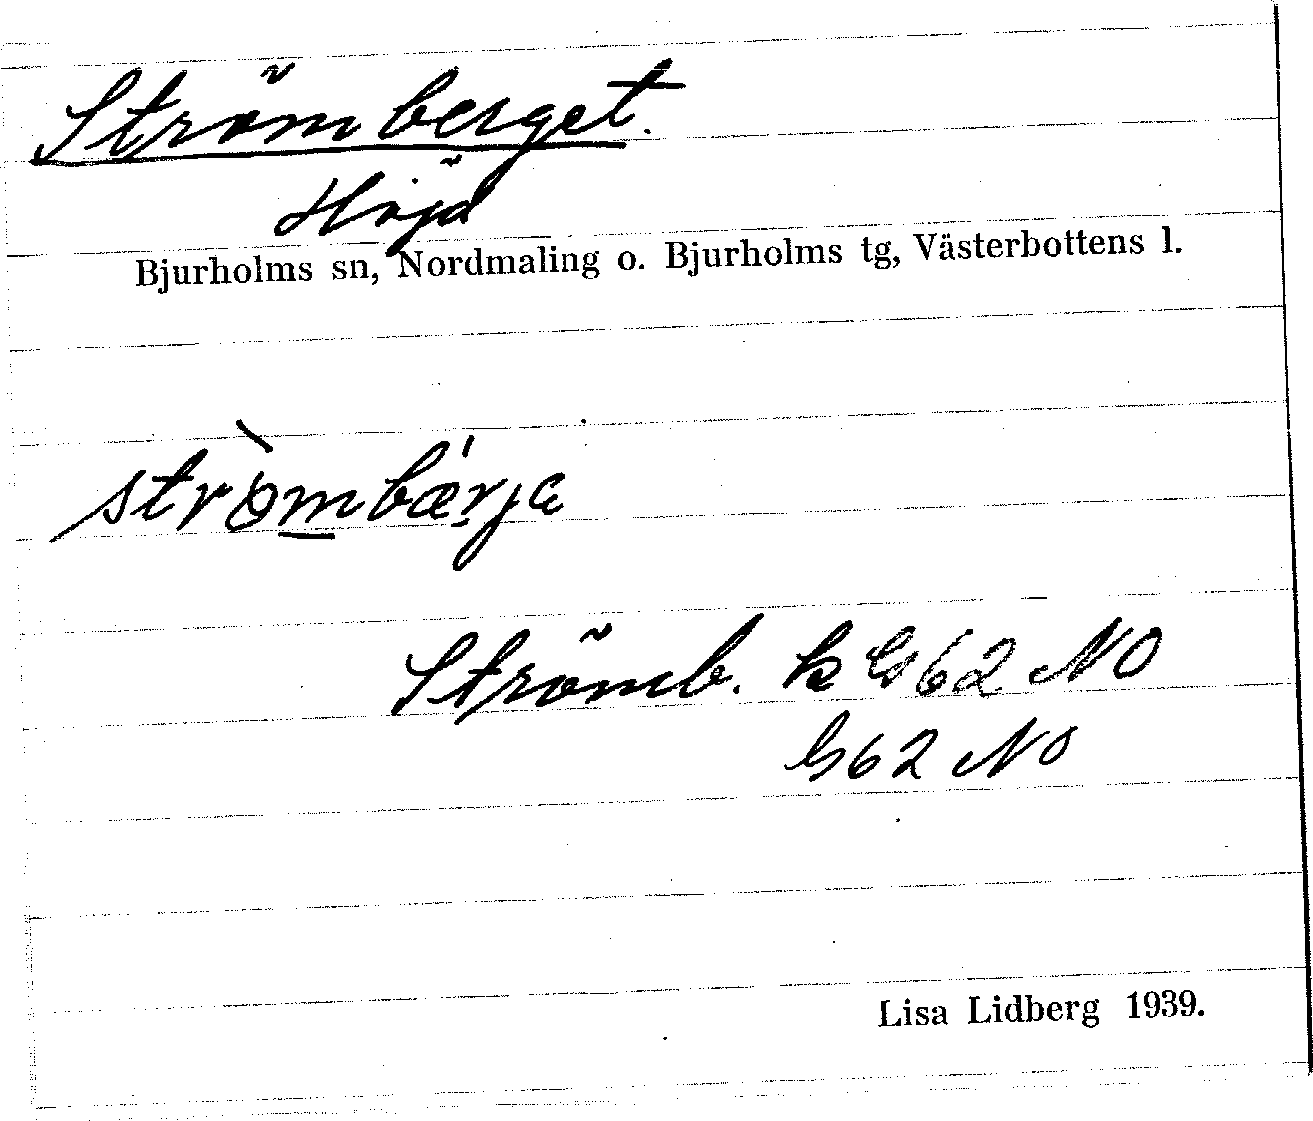 Strömberget.
Höjd
Bjurholms sn, Nordmaling o. Bjurholms tg, Västerbottens l.
strò̱mbæ̀rja
Strömb. k G62 NO
G62 NO
Lisa Lidberg 1939.